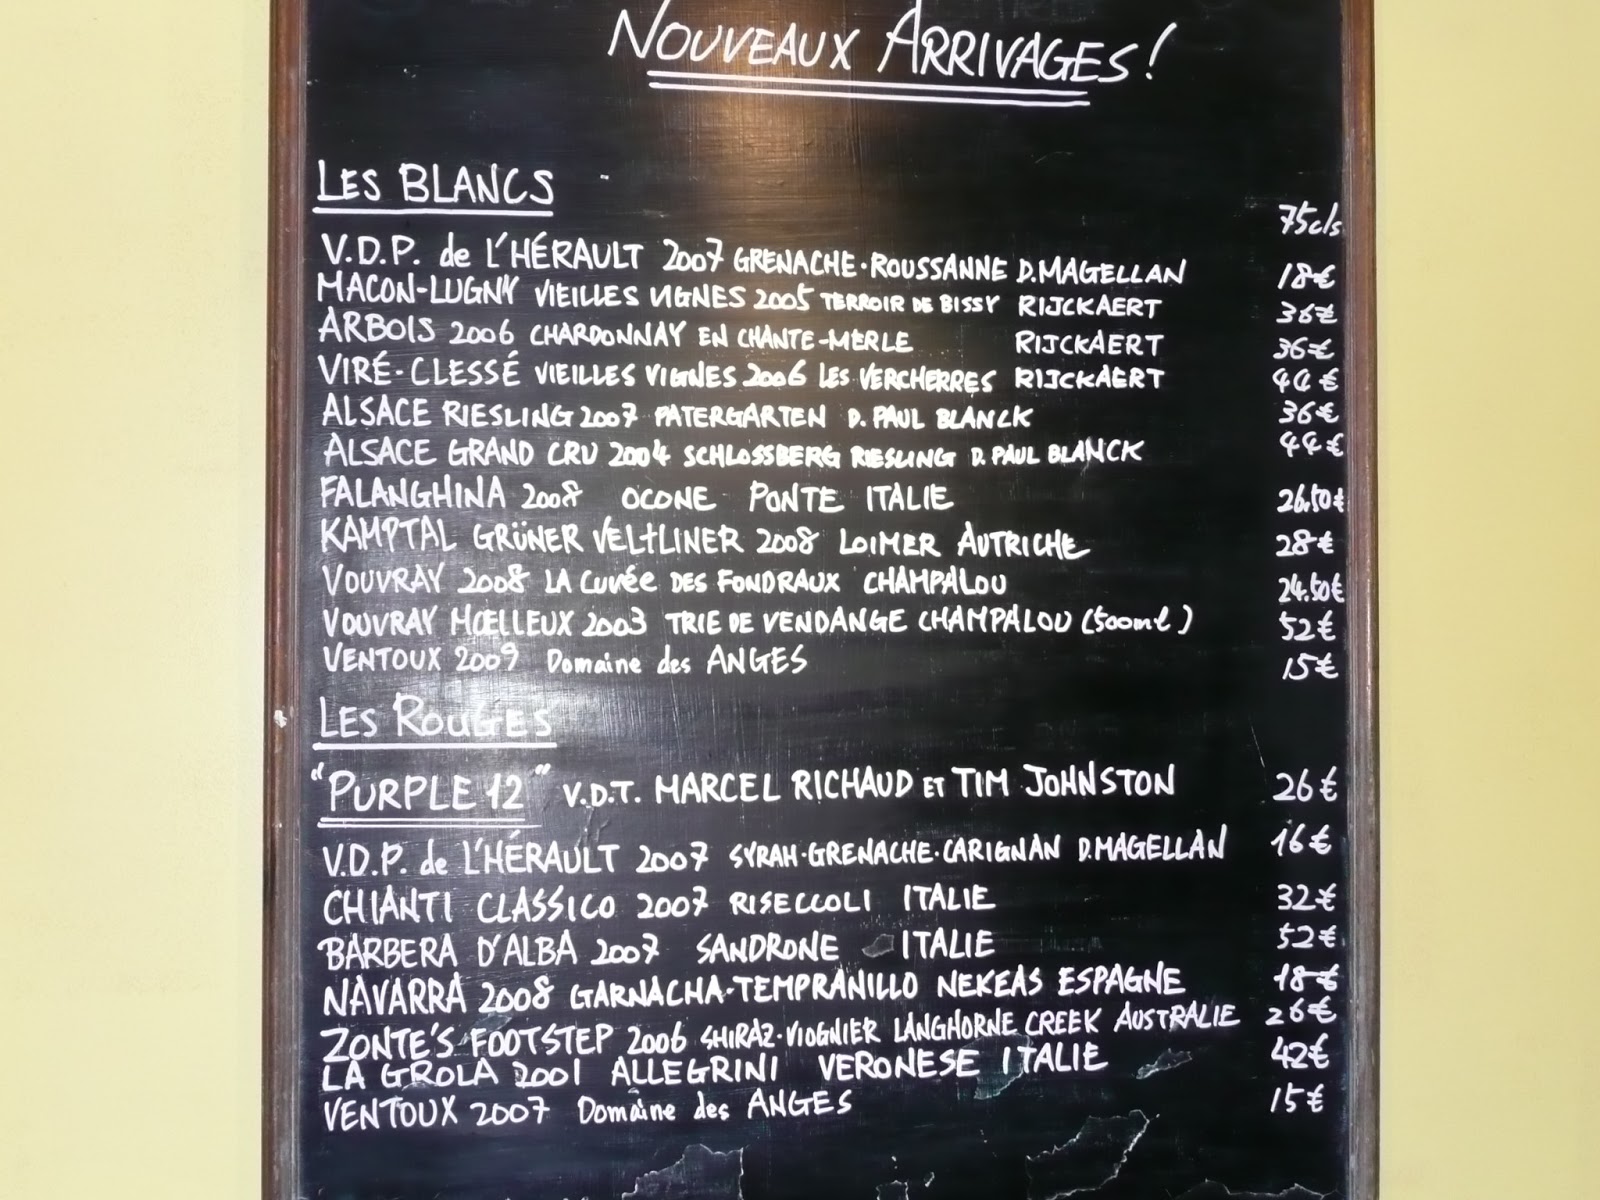 NOUVEAUX ARRIVAGES!
LES BLANCS
75cls
V.D.P. de L'HÉRAULT 2007 GRENACHE·ROUSSANNE D.MAGELLAN 18€
MACON-LUGNY VIEILLES VIGNES 2005 TERROIR DE BISSY RIJCKAERT 36€
ARBOIS 2006 CHARDONNAY EN CHANTE-MERLE RIJCKAERT 36€
VIRÉ-CLESSÉ VIEILLES VIGNES 2006 LES VERCHERRES RIJCKAERT 44€
ALSACE RIESLING 2007 PATERGARTEN D. PAUL BLANCK 36€
ALSACE GRAND CRU 2004 SCHLOSSBERG RIESLING D. PAUL BLANCK 44€
FALANGHINA 2008 OCONE PONTE ITALIE 26.50€
KAMPTAL GRÜNER VELTLINER 2008 LOIMER AUTRICHE 28€
VOUVRAY 2008 LA CUVÉE DES FONDRAUX CHAMPALOU 24.50€
VOUVRAY MŒLLEUX 2003 TRIE DE VENDANGE CHAMPALOU (500ml) 52€
VENTOUX 2009 Domaine des ANGES 15€
LES ROUGES
"PURPLE 12" V.D.T. MARCEL RICHAUD ET TIM JOHNSTON 26€
V.D.P. de L'HÉRAULT 2007 SYRAH·GRENACHE·CARIGNAN D.MAGELLAN 16€
CHIANTI CLASSICO 2007 RISECCOLI ITALIE 32€
BARBERA D'ALBA 2007 SANDRONE ITALIE 52€
NAVARRA 2008 GARNACHA-TEMPRANILLO NEKEAS ESPAGNE 18€
ZONTE'S FOOTSTEP 2006 SHIRAZ·VIOGNIER LANGHORNE CREEK AUSTRALIE 26€
LA GROLA 2001 ALLEGRINI VERONESE ITALIE 42€
VENTOUX 2007 Domaine des ANGES 15€